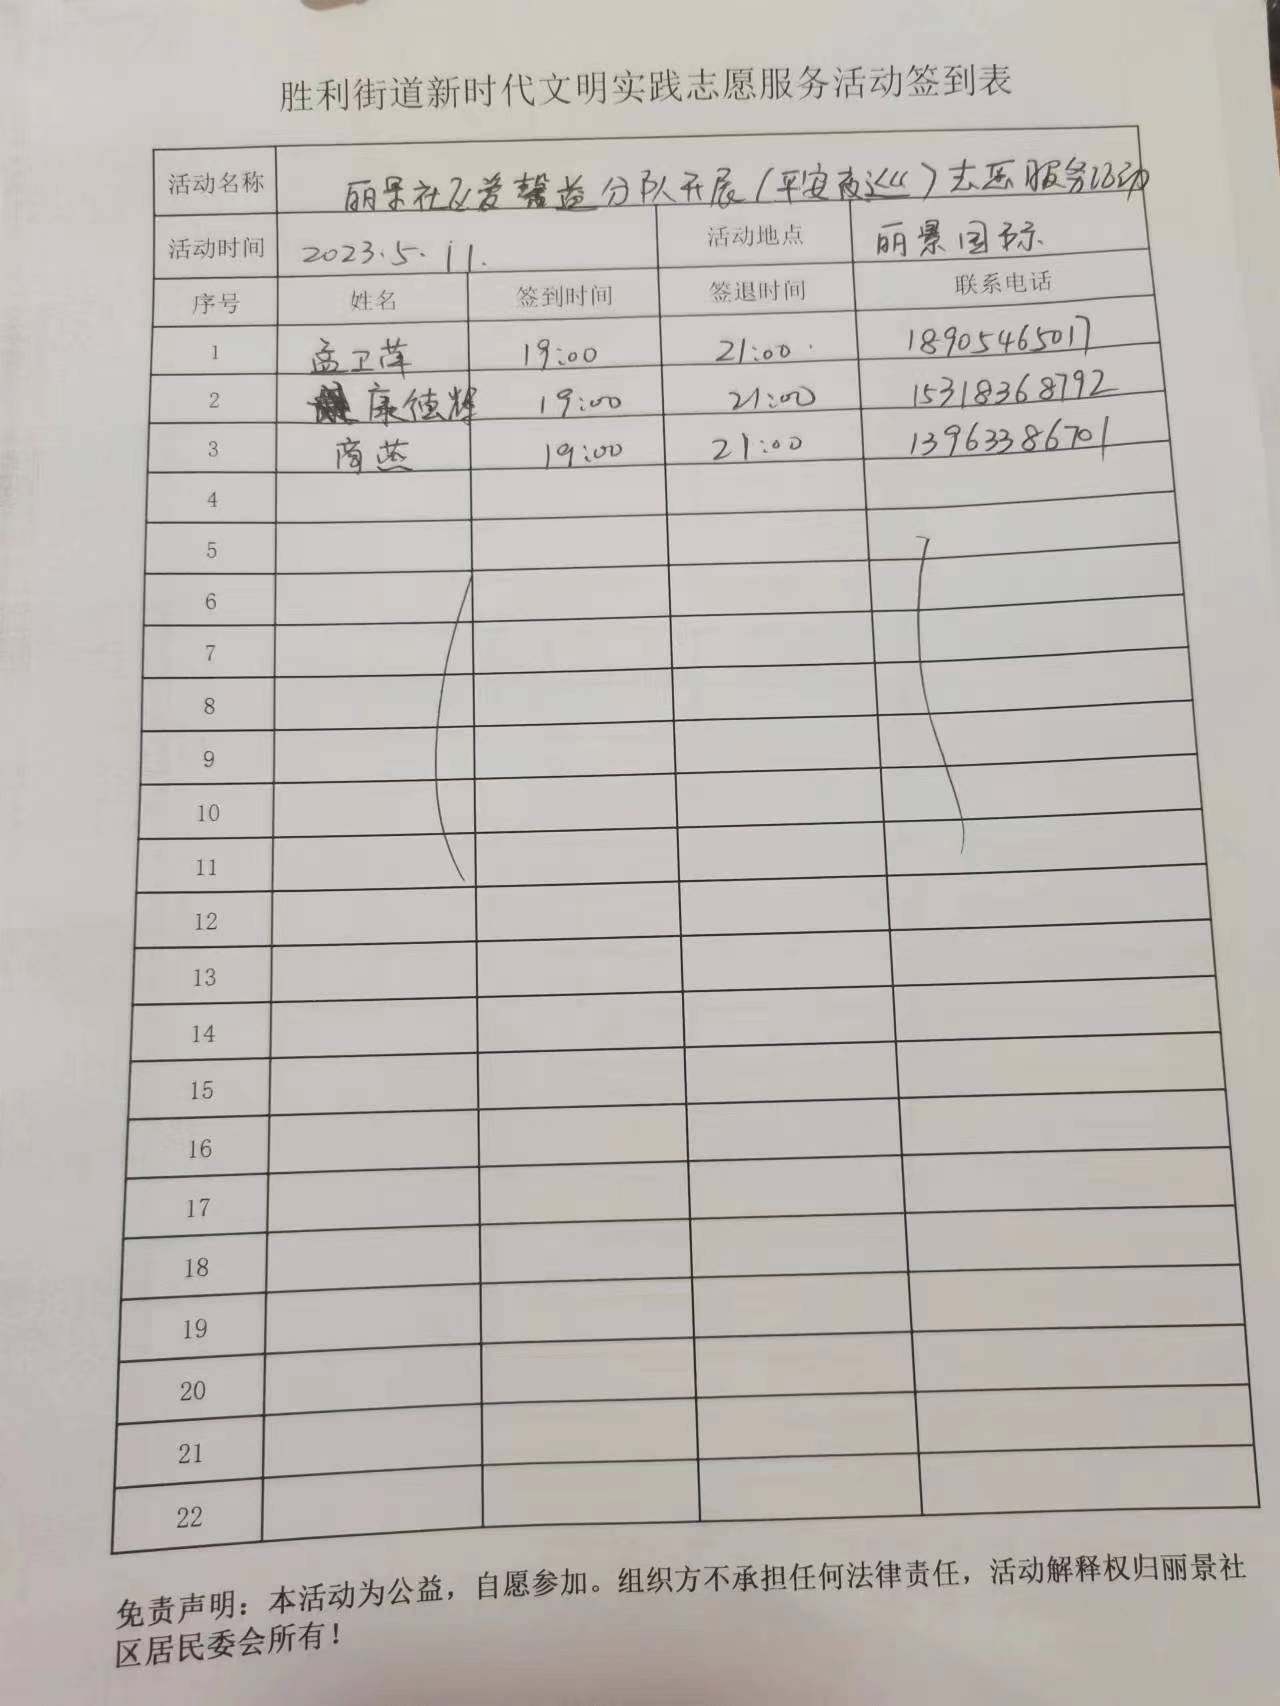 胜利街道新时代文明实践志愿服务活动签到表
活动名称 丽景社区爱馨益分队开展(平安夜巡)志愿服务活动
活动时间 2023.5.11. 活动地点 丽景国际
序号 姓名 签到时间 签退时间 联系电话
1 孟卫萍 19:00 21:00 18905465017
2 康德辉 19:00 21:00 15318368792
3 商燕 19:00 21:00 13963386701
4
5
6
7
8
9
10
11
12
13
14
15
16
17
18
19
20
21
22
免责声明：本活动为公益，自愿参加。组织方不承担任何法律责任，活动解释权归丽景社
区居民委会所有！